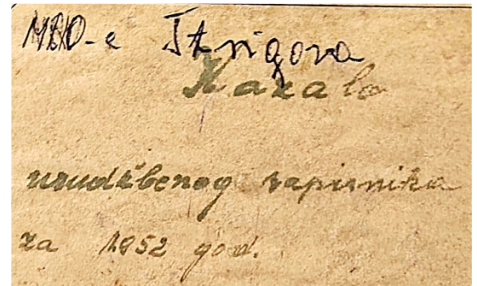 NOO-e Štrigova
Kazalo
urudžbenog zapisnika
za 1952 god.